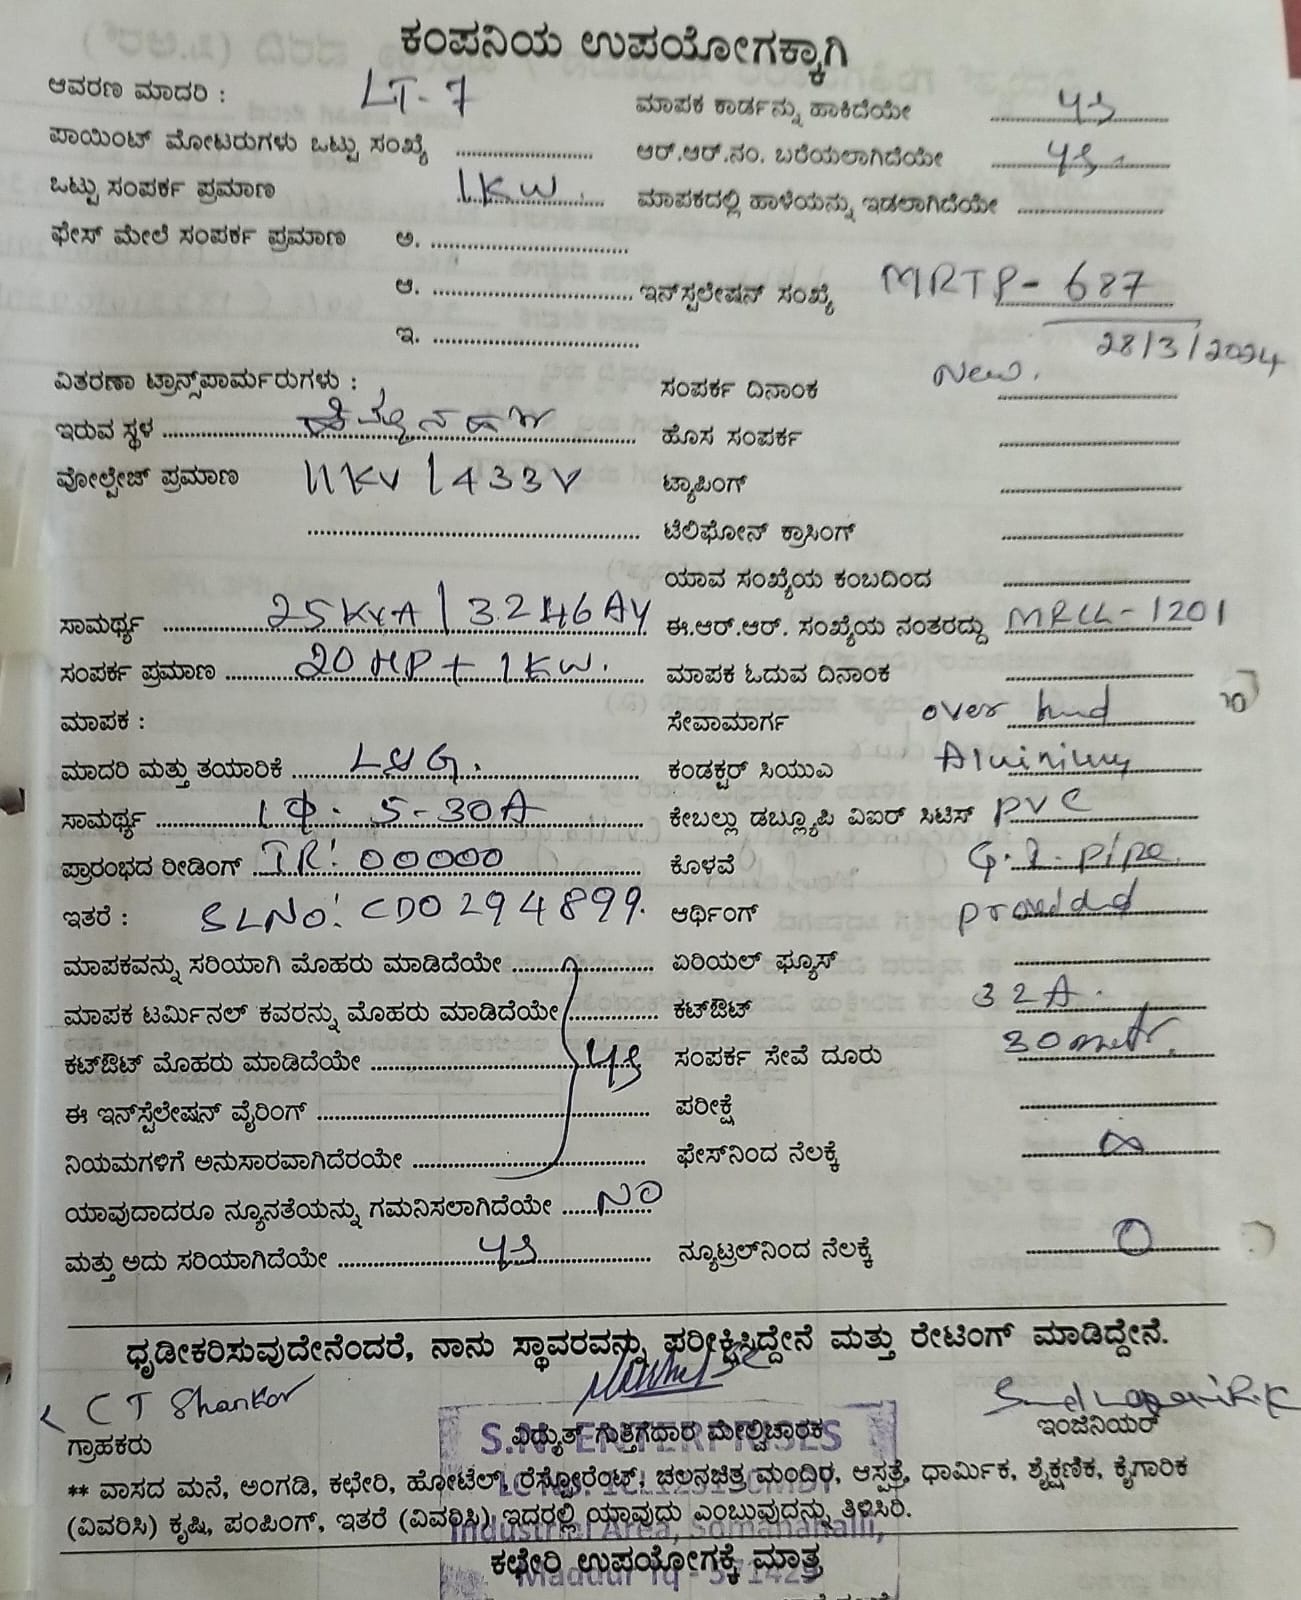 ಕಂಪನಿಯ ಉಪಯೋಗಕ್ಕಾಗಿ
ಆವರಣ ಮಾದರಿ : LT-7
ಮಾಪಕ ಕಾರ್ಡನ್ನು ಹಾಕಿದೆಯೇ
ಪಾಯಿಂಟ್ ಮೋಟರುಗಳು ಒಟ್ಟು ಸಂಖ್ಯೆ
ಆರ್.ಆರ್.ನಂ. ಬರೆಯಲಾಗಿದೆಯೇ
ಒಟ್ಟು ಸಂಪರ್ಕ ಪ್ರಮಾಣ 1KW.
ಮಾಪಕದಲ್ಲಿ ಹಾಳೆಯನ್ನು ಇಡಲಾಗಿದೆಯೇ
ಫೇಸ್ ಮೇಲೆ ಸಂಪರ್ಕ ಪ್ರಮಾಣ ಅ.
ಆ.
ಇನ್‌ಸ್ಟಲೇಷನ್ ಸಂಖ್ಯೆ MRTP-687
ಇ.
28/3/2024
ವಿತರಣಾ ಟ್ರಾನ್ಸ್‌ಪಾರ್ಮರುಗಳು :
ಸಂಪರ್ಕ ದಿನಾಂಕ New.
ಇರುವ ಸ್ಥಳ
ಹೊಸ ಸಂಪರ್ಕ
ವೋಲ್ಟೇಜ್ ಪ್ರಮಾಣ 11KV/433V
ಟ್ಯಾಪಿಂಗ್
ಟೆಲಿಫೋನ್ ಕ್ರಾಸಿಂಗ್
ಯಾವ ಸಂಖ್ಯೆಯ ಕಂಬದಿಂದ
ಸಾಮರ್ಥ್ಯ 25KVA/
ಈ.ಆರ್.ಆರ್. ಸಂಖ್ಯೆಯ ನಂತರದ್ದು -1201
ಸಂಪರ್ಕ ಪ್ರಮಾಣ 20HP+1KW.
ಮಾಪಕ ಓದುವ ದಿನಾಂಕ
ಮಾಪಕ :
ಸೇವಾಮಾರ್ಗ over
ಮಾದರಿ ಮತ್ತು ತಯಾರಿಕೆ
ಕಂಡಕ್ಟರ್ ಸಿಯುಎ
ಸಾಮರ್ಥ್ಯ 1Φ. 5-30A
ಕೇಬಲ್ಲು ಡಬ್ಲ್ಯೂಪಿ ವಿಐರ್ ಸಿಟಿಸ್ PVC
ಪ್ರಾರಂಭದ ರೀಡಿಂಗ್ 00000
ಕೊಳವೆ G.I. pipe
ಇತರೆ : SLNO: CD0294899.
ಆರ್ಥಿಂಗ್ provided
ಮಾಪಕವನ್ನು ಸರಿಯಾಗಿ ಮೊಹರು ಮಾಡಿದೆಯೇ
ಏರಿಯಲ್ ಫ್ಯೂಸ್
ಮಾಪಕ ಟರ್ಮಿನಲ್ ಕವರನ್ನು ಮೊಹರು ಮಾಡಿದೆಯೇ
ಕಟ್‌ಔಟ್ 32A.
ಕಟ್‌ಔಟ್ ಮೊಹರು ಮಾಡಿದೆಯೇ
ಸಂಪರ್ಕ ಸೇವೆ ದೂರು
ಈ ಇನ್‌ಸ್ಟೆಲೇಷನ್ ವೈರಿಂಗ್
ಪರೀಕ್ಷೆ
ನಿಯಮಗಳಿಗೆ ಅನುಸಾರವಾಗಿದೆರಯೇ
ಫೇಸ್‌ನಿಂದ ನೆಲಕ್ಕೆ ∞
ಯಾವುದಾದರೂ ನ್ಯೂನತೆಯನ್ನು ಗಮನಿಸಲಾಗಿದೆಯೇ NO
ಮತ್ತು ಅದು ಸರಿಯಾಗಿದೆಯೇ
ನ್ಯೂಟ್ರಲ್‌ನಿಂದ ನೆಲಕ್ಕೆ 0
ಧೃಡೀಕರಿಸುವುದೇನೆಂದರೆ, ನಾನು ಸ್ಥಾವರವನ್ನು ಪರೀಕ್ಷಿಸಿದ್ದೇನೆ ಮತ್ತು ರೇಟಿಂಗ್ ಮಾಡಿದ್ದೇನೆ.
CT Shankar
ಗ್ರಾಹಕರು
ವಿದ್ಯುತ್ ಗುತ್ತಿಗೆದಾರ ಮೇಲ್ವಿಚಾರಕ
ಇಂಜಿನಿಯರ್
** ವಾಸದ ಮನೆ, ಅಂಗಡಿ, ಕಛೇರಿ, ಹೋಟೆಲ್, ರೆಸ್ಟೋರೆಂಟ್, ಚಲನಚಿತ್ರ ಮಂದಿರ, ಆಸ್ಪತ್ರೆ, ಧಾರ್ಮಿಕ, ಶೈಕ್ಷಣಿಕ, ಕೈಗಾರಿಕ
(ವಿವರಿಸಿ) ಕೃಷಿ, ಪಂಪಿಂಗ್, ಇತರೆ (ವಿವರಿಸಿ) ಇದರಲ್ಲಿ ಯಾವುದು ಎಂಬುವುದನ್ನು ತಿಳಿಸಿರಿ.
Industrial Area, Somanahalli,
ಕಛೇರಿ ಉಪಯೋಗಕ್ಕೆ ಮಾತ್ರ